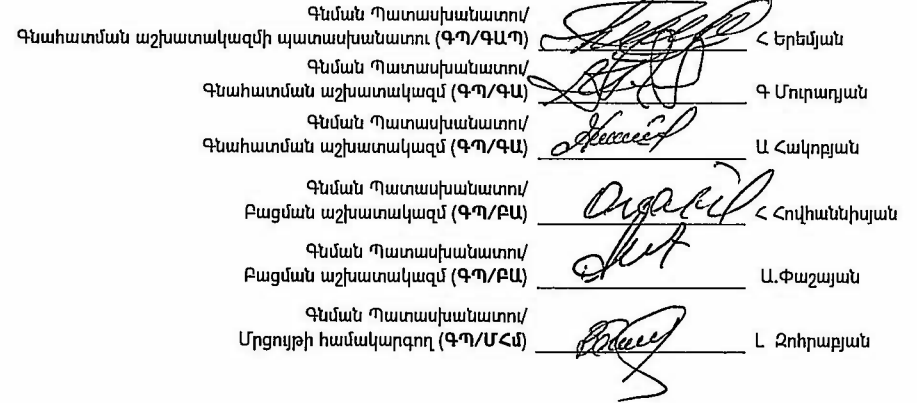 Գնման Պատասխանատու/
Գնահատման աշխատակազմի պատասխանատու (ԳՊ/ԳԱՊ) Հ Երեմյան
Գնման Պատասխանատու/
Գնահատման աշխատակազմ (ԳՊ/ԳԱ) Գ Մուրադյան
Գնման Պատասխանատու/
Գնահատման աշխատակազմ (ԳՊ/ԳԱ) Ա Հակոբյան
Գնման Պատասխանատու/
Բացման աշխատակազմ (ԳՊ/ԲԱ) Հ Հովհաննիսյան
Գնման Պատասխանատու/
Բացման աշխատակազմ (ԳՊ/ԲԱ) Ա.Փաշայան
Գնման Պատասխանատու/
Մրցույթի համակարգող (ԳՊ/ՄՀմ) Լ Զոհրաբյան